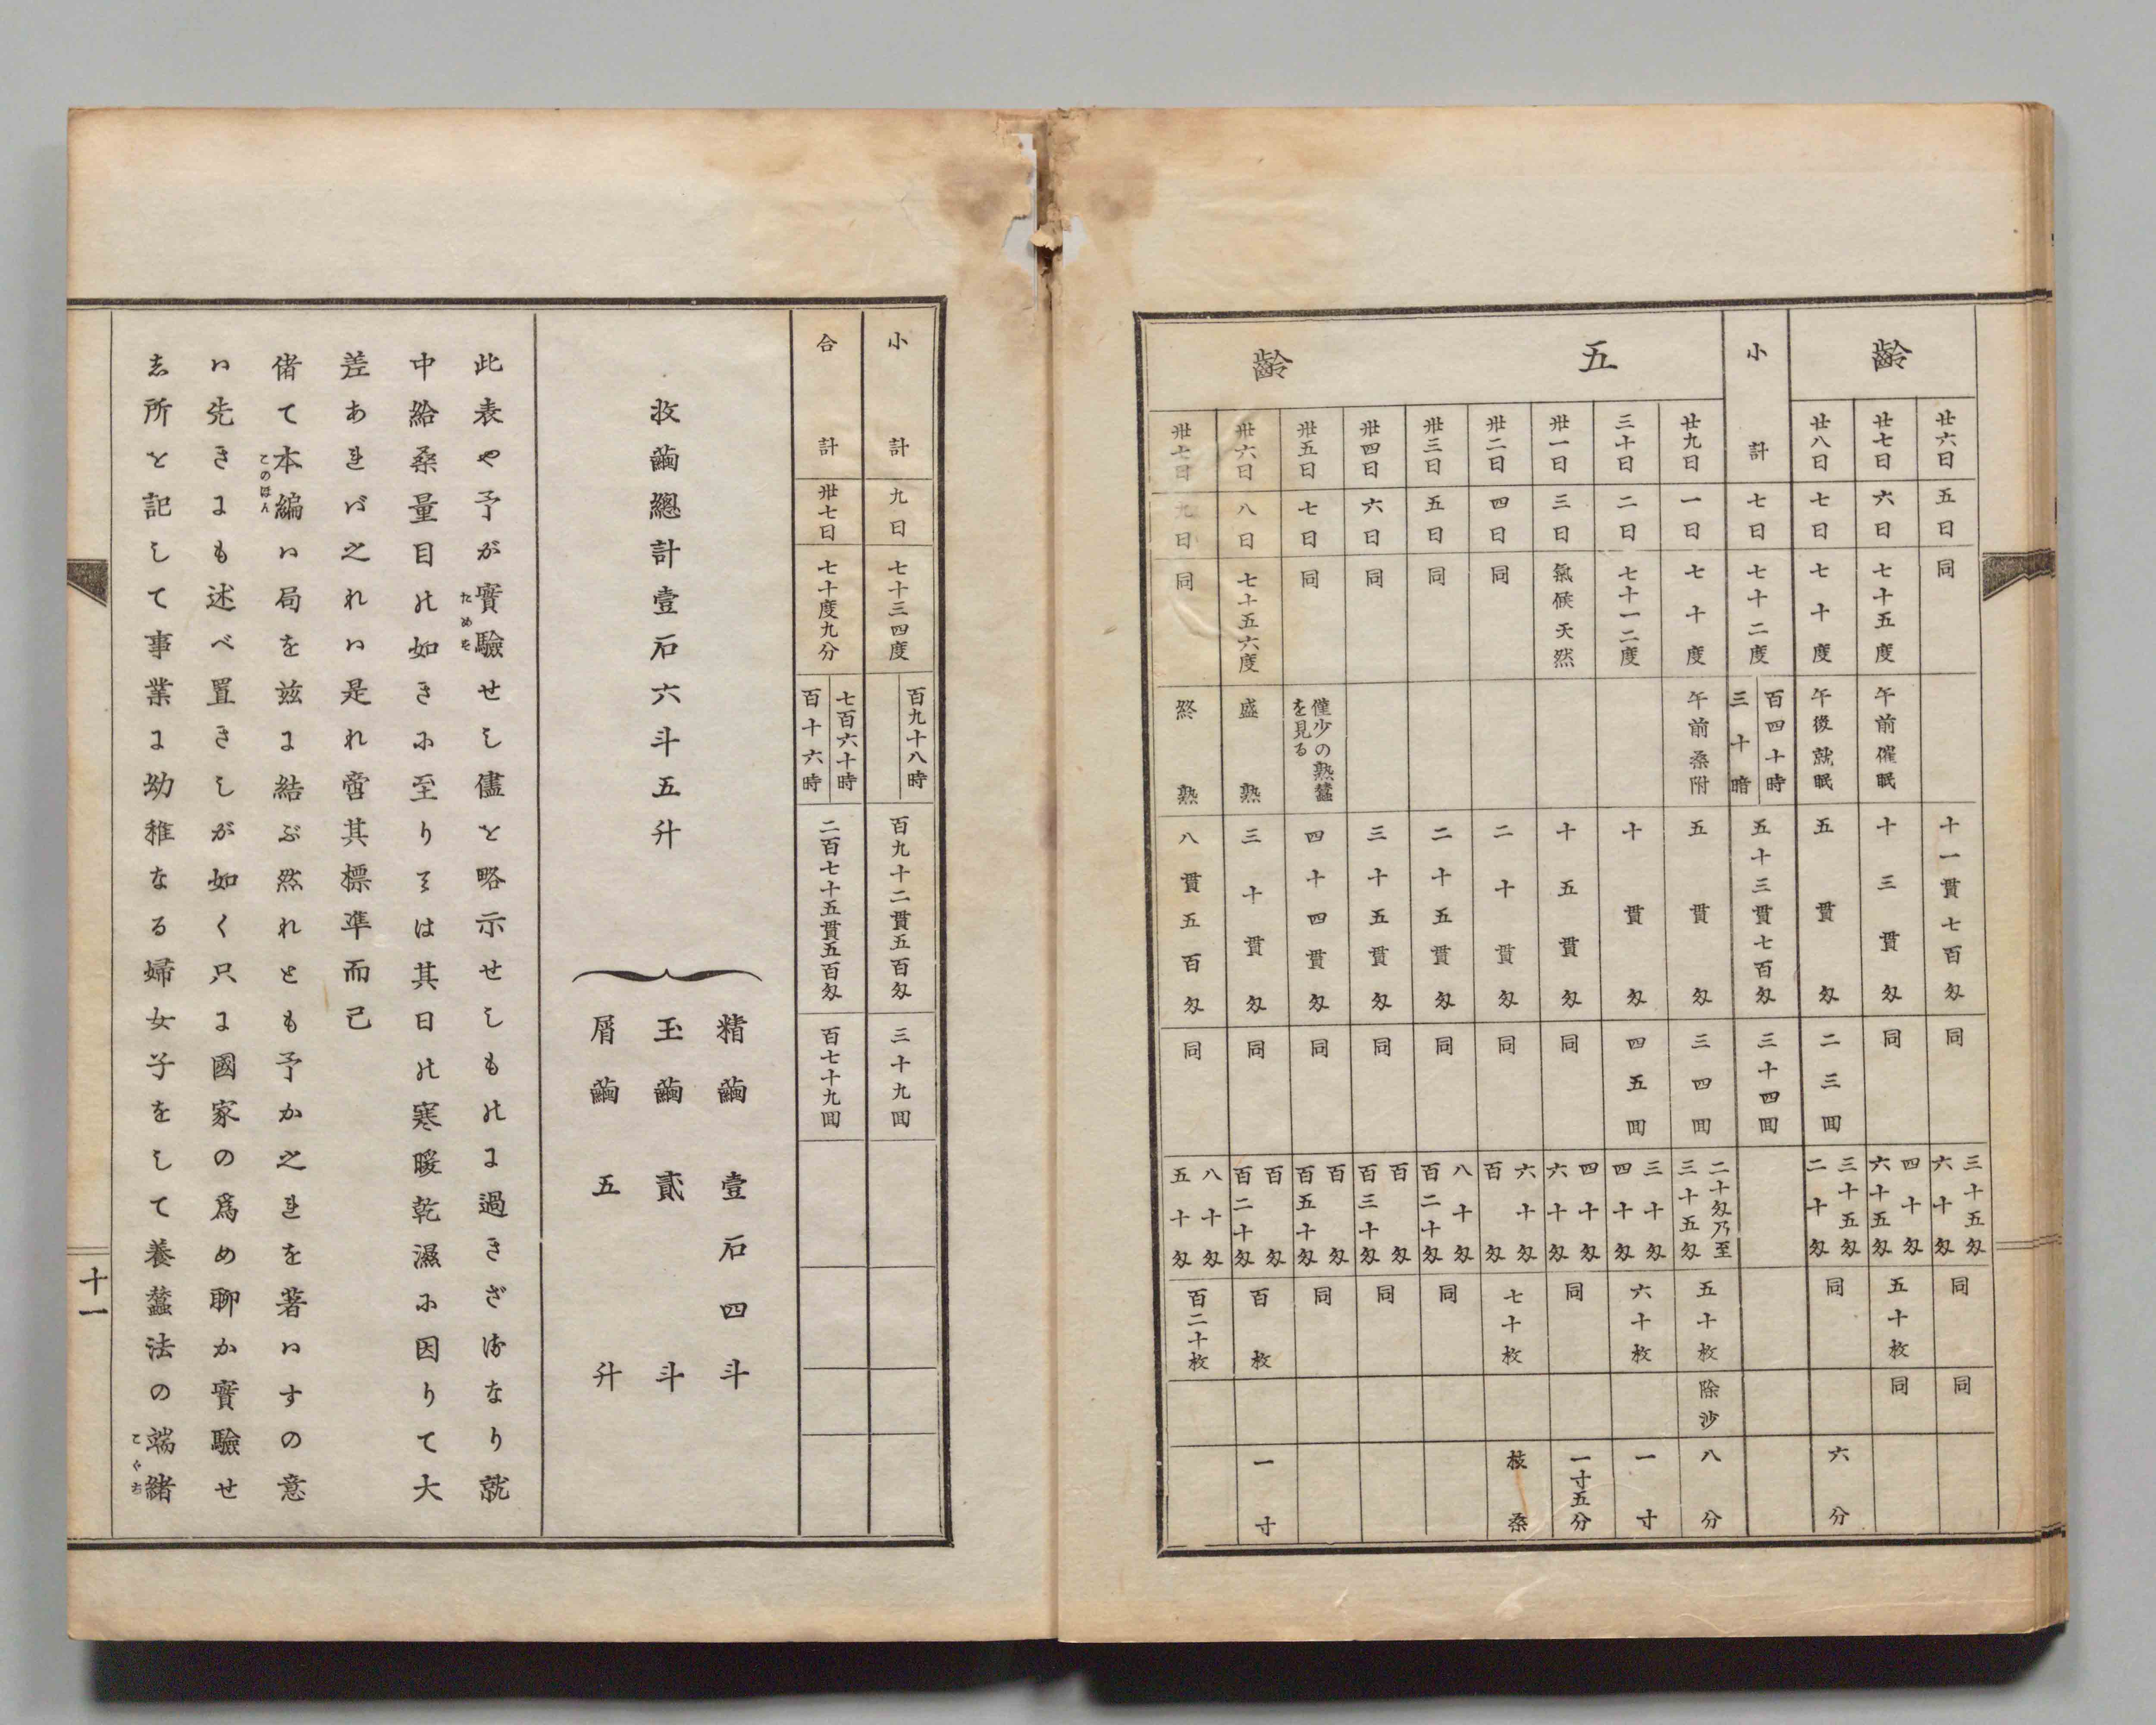 齡
廿六日 五日 同 十一貫七百匁 同 三十五匁 六十匁 同 同
廿七日 六日 七十五度 午前催眠 十三貫匁 同 四十匁 六十五匁 五十枚 同
廿八日 七日 七十度 午後就眠 五貫匁 二三回 三十五匁 二十匁 同 六分
小計 七日 七十二度 百四十時 三十時 五十三貫七百匁 三十四回
五齡
廿九日 一日 七十度 午前桑附 五貫匁 三四回 二十匁乃至 三十五匁 五十枚 除沙 八分
三十日 二日 七十一二度 十貫匁 四五回 三十匁 四十匁 六十枚 一寸
卅一日 三日 氣候天然 十五貫匁 同 四十匁 六十匁 同 一寸五分
卅二日 四日 同 二十貫匁 同 六十匁 百匁 七十枚 枝桑
卅三日 五日 同 二十五貫匁 同 八十匁 百二十匁 同
卅四日 六日 同 三十五貫匁 同 百匁 百三十匁 同
卅五日 七日 同 僅少の熟蠶を見る 四十四貫匁 同 百匁 百五十匁 同
卅六日 八日 七十五六度 盛熟 三十貫匁 同 百匁 百二十匁 百枚 一寸
卅七日 九日 同 終熟 八貫五百匁 同 八十匁 五十匁 百二十枚
小計 九日 七十三四度 百九十八時 百九十二貫五百匁 三十九回
合計 卅七日 七十度九分 七百六十時 百十六時 二百七十五貫五百匁 百七十九回
收繭總計壹石六斗五升
精繭 壹石四斗
玉繭 貳斗
屑繭 五升
此表や予が實驗せし儘と略示せしものに過きざるなり就
ためそ
中給桑量目の如きに至りては其日の寒暖乾濕に因りて大
差あれば之れハ是れ啻其標準而已
偖て本編ハ局を玆に結ぶ然れとも予か之れを著ハすの意
このほん
ハ先きにも述べ置きしが如く只に國家の爲め聊か實驗せ
し所と記して事業に幼稚なる婦女子をして養蠶法の端緒
いとぐち
十一